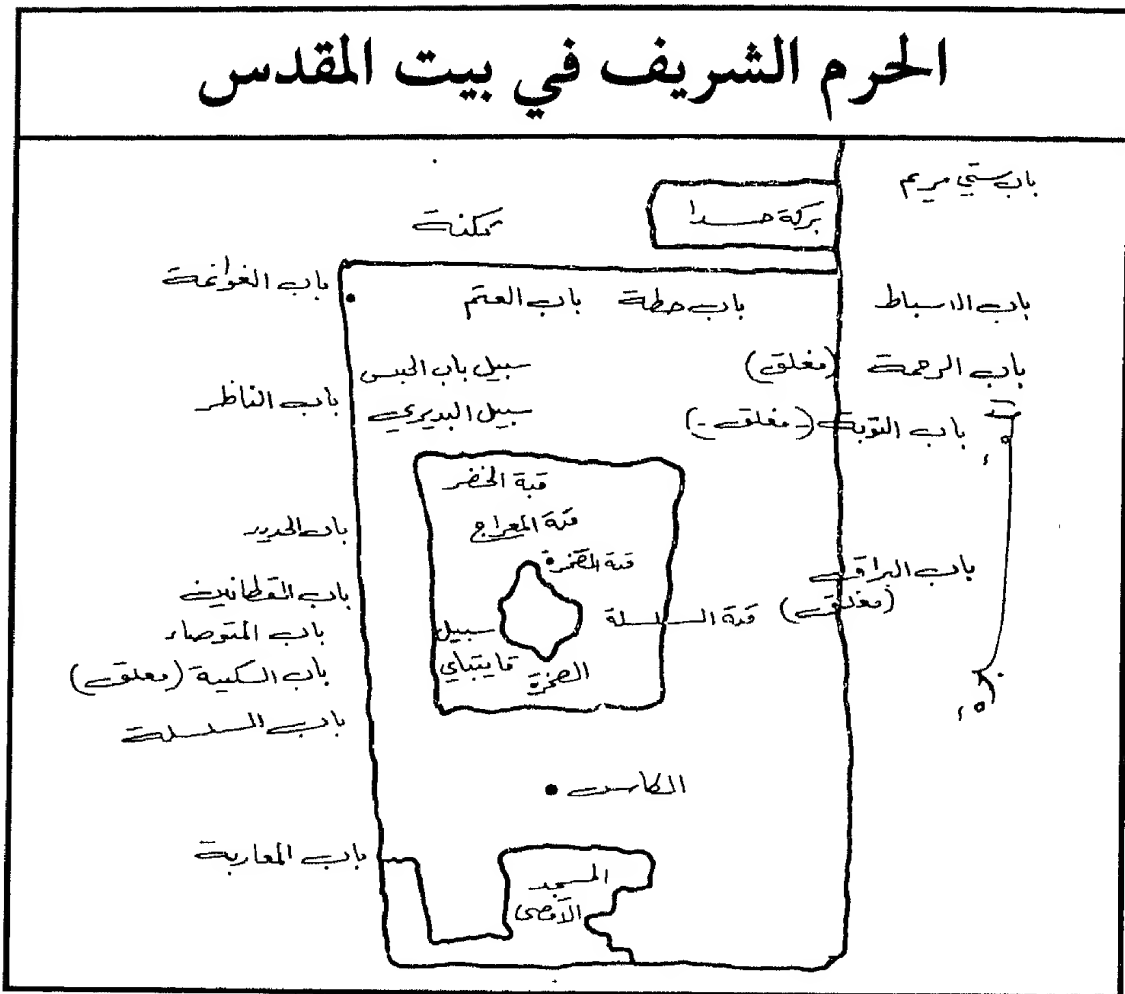 الحرم الشريف في بيت المقدس
باب ستي مريم
بركة
باب الغوانمة
باب العتم
باب حطة
باب الاسباط
سبيل باب الحبس
باب الرحمة (مغلق)
باب الناظر
سبيل البديري
باب التوبة (- مغلق -)
قبة الخضر
قبة المعراج
باب الحديد
قبة الصخرة
باب البراق
(مغلق)
باب القطانين
قبة السلسلة
سبيل
قايتباي
الصخرة
باب المتوضاء
باب السكينة (مغلق)
باب السلسلة
الكاس
باب المغاربة
المسجد
الاقصى